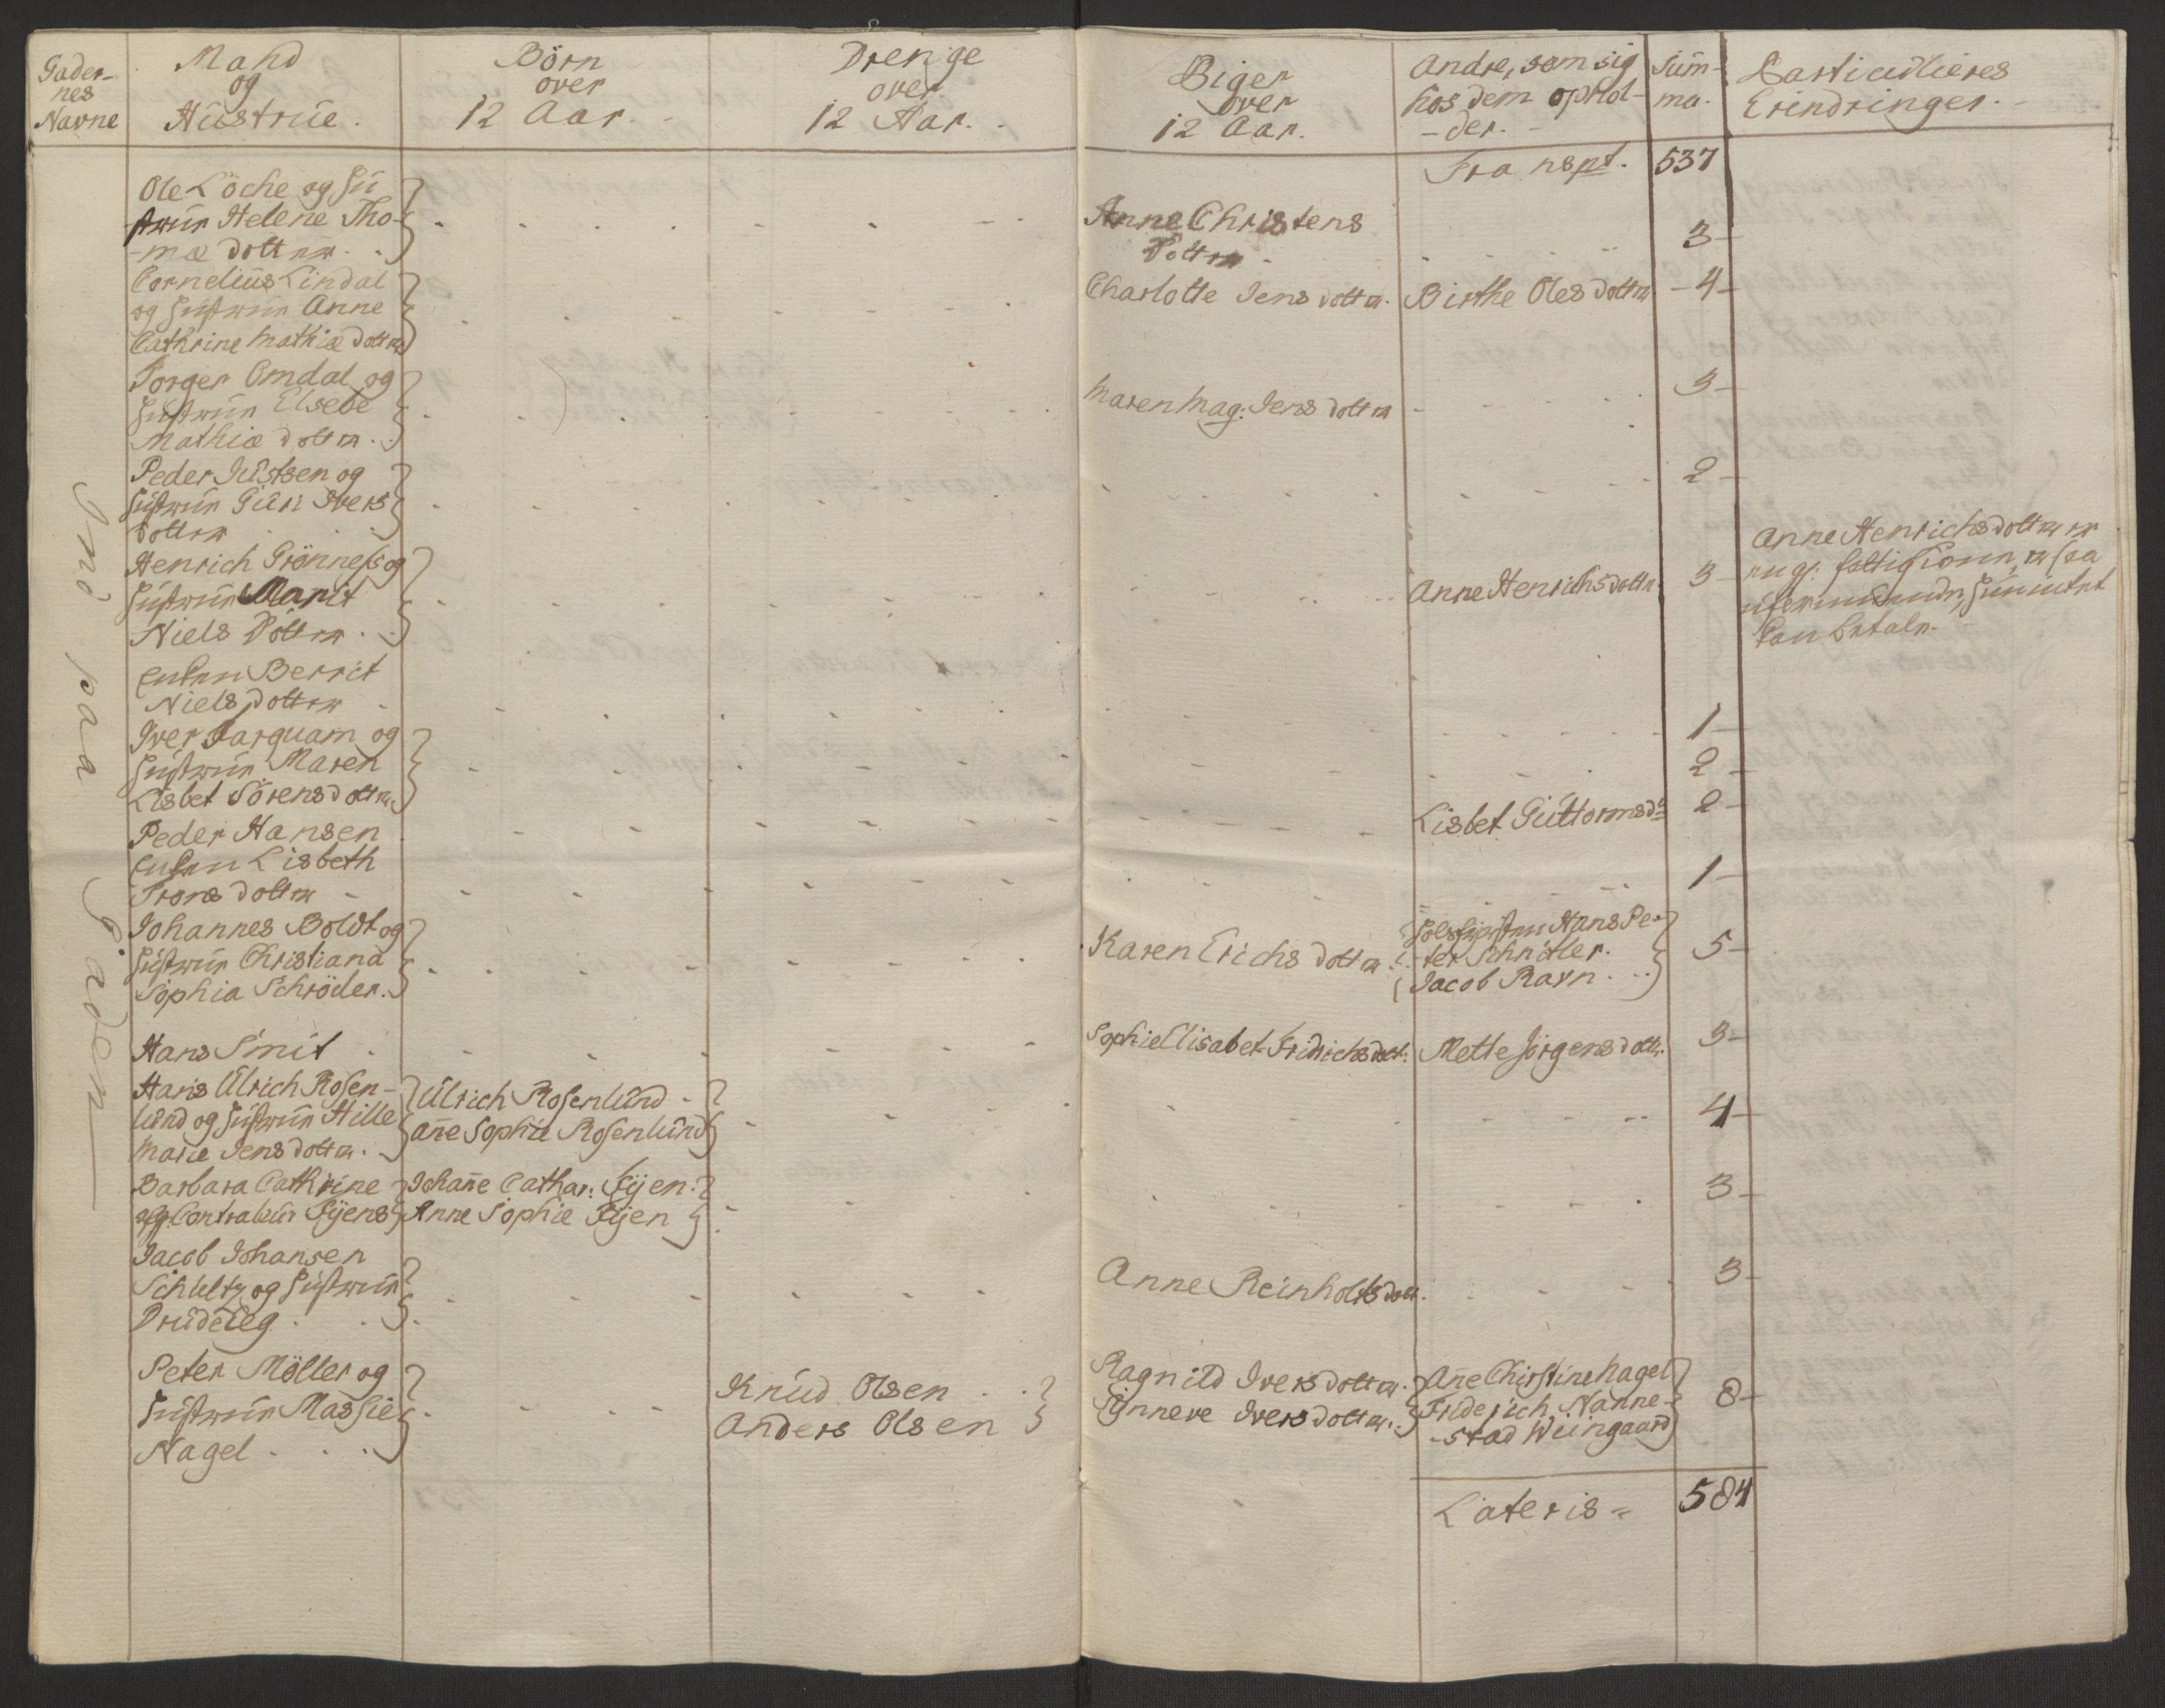 Gader-
nes
Navne
Mand
og
Hüstrüe.
Börn
over
12 Aar.
Drenge
over
12 Aar.
Piger
over
12 Aar.
Andre, som sig
hos dem ophol-
-der.
Süm-
ma.
Particulieres
Erindringer.
Transpt. 537
Smö paa Gaden
Ole Löche og Hü
strüe Helene Tho-
-mæ dotter
Anne Christens
Dotter
3
Cornelius Lindal
og Hüstrüe Anne
Cathrine Mathiæ dotter
Charlotte Jens dotter. Birthe Oles dotter 4
Torger Omdal og
Hüstrüe Elsebe
Mathiæ dotter.
Maren Mag: Jens dotter
3
Peder Jüstsen og
Hüstrüe Güri Ivers
dotter
2
Henrich Grönnes og
Hüstrüe Marit
Niels Dotter.
Anne Henrichsdotter. 3
Anne Henrichsdotter er
fattig
kan betale.
Enken Berrit
Niels dotter
1
Iver Farquam og
Hüstrüe Maren
Lisbet Sörensdotter.
2
Peder Hansen
Lisbet Güttormsdr 2
Enken Lisbeth
Trons dotter
1
Johannes Boldt og
Hüstrüe Christiana
Sophia Schröder.
Karen Erichs dotter.
Hans Pe-
-ter Schnitler.
Jacob Ravn.
5
Hans Smit
Sophie Elisabet Fridrichsdott: Mette Jörgensdotter. 3
Hans Ülrich Rosen-
lünd og Hüstrüe Hille
Marie Jens dotter.
Ülrich Rosenlünd
Añe Sophie Rosenlünd
4
Barbara Cathrine
Contraleür Fÿens
Johañe Cathar: Fÿen.
Anne Sophie Fÿen
3
Jacob Johansen
Schültz og Hüstrüe
Drüde
Anne Reinholtsdott.
3
Peter Möller og
Hüstrüe Massie
Nagel
Knüd Olsen
Anders Olsen
Ragnild Ivers dotter.
Sÿnneve Ivers dotter.
Añe Christine Nagel
Friderich Nanne-
-stad Wiingaard
8
Lateris 584